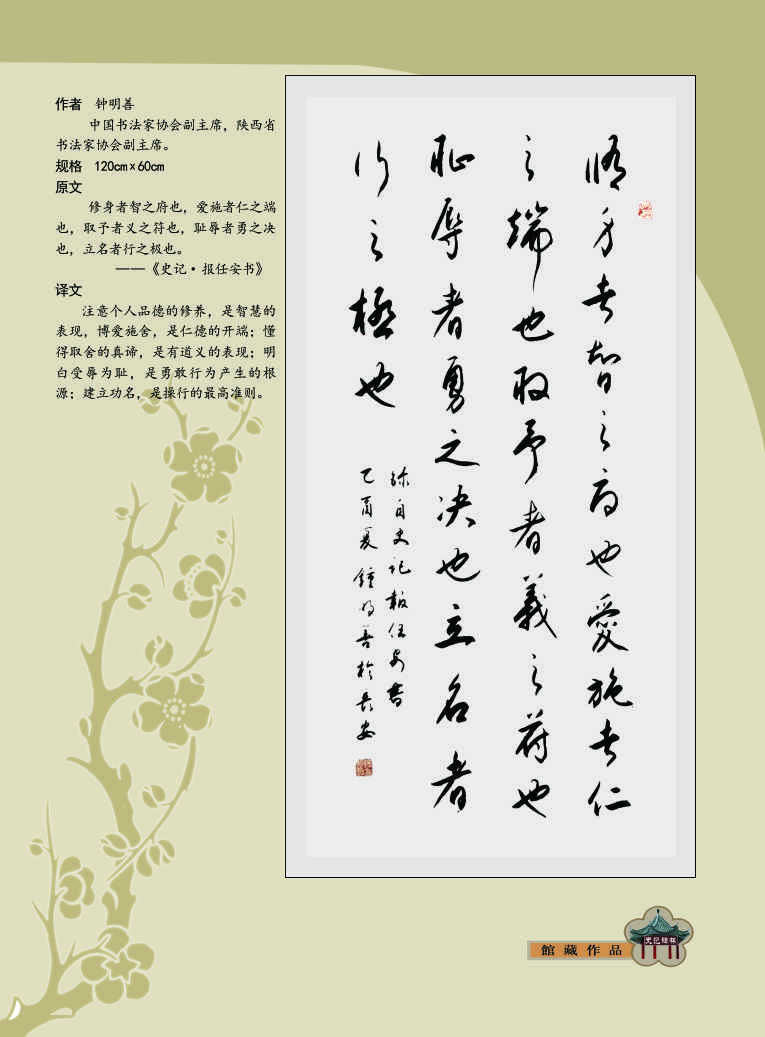 作者 钟明善
中国书法家协会副主席，陕西省
书法家协会副主席。
规格 120cm×60cm
原文
修身者智之府也，爱施者仁之端
也，取予者义之符也，耻辱者勇之决
也，立名者行之极也。
——《史记·报任安书》
译文
注意个人品德的修养，是智慧的
表现，博爱施舍，是仁德的开端；懂
得取舍的真谛，是有道义的表现；明
白受辱为耻，是勇敢行为产生的根
源；建立功名，是操行的最高准则。
脩身者智之府也愛施者仁
之端也取予者義之符也
恥辱者勇之决也立名者
行之極也
錄自史记報任安書
乙酉夏鍾明善於長安
館藏作品